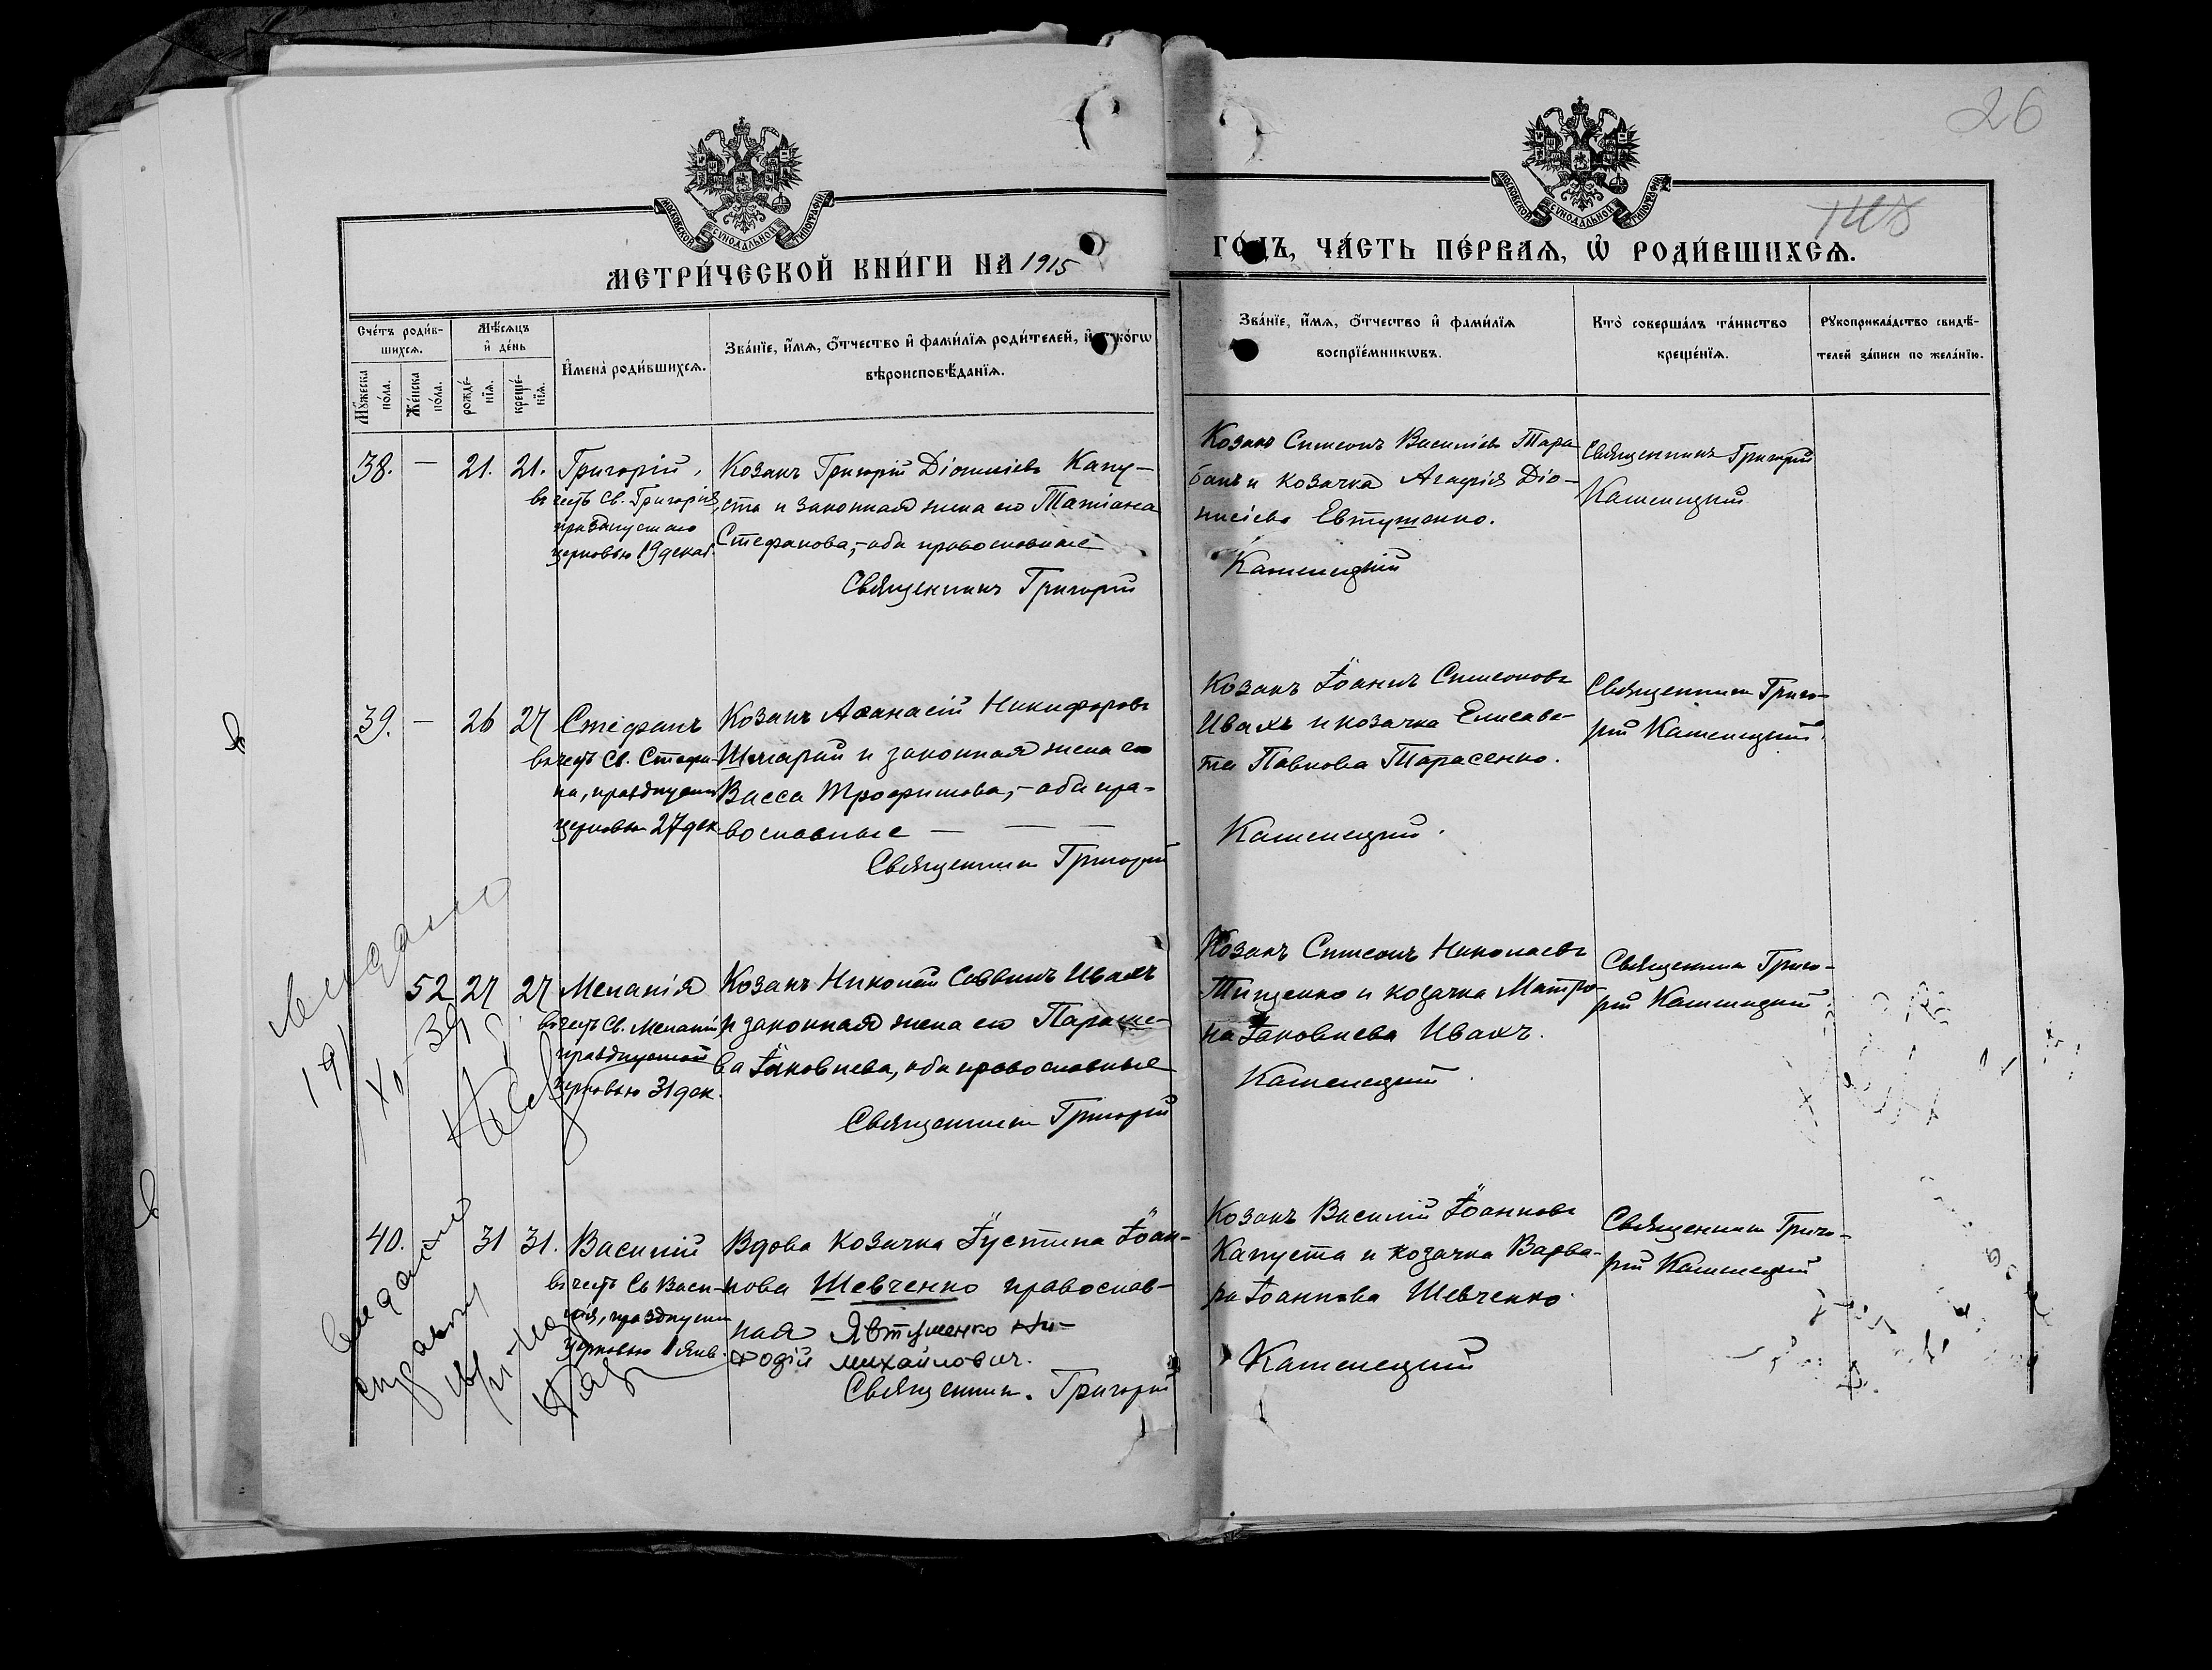 26
МОСКОВСКОЙ СѴНОДАЛЬНОЙ ТИПОГРАФІИ
МОСКОВСКОЙ СѴНОДАЛЬНОЙ ТИПОГРАФІИ
МЕТРИ́ЧЕСКОЙ КНИ́ГИ НА 1915
ГО́ДЪ, ЧА́СТЬ ПЕ́РВАЯ, Ѽ РОДИ́ВШИХСЯ.
Сче́тъ роди́в-
шихся.
Мꙋ́жеска по́ла.
Же́нска по́ла.
Мѣ́сяцъ
и҆ де́нь
рожде́-
нїя.
креще́-
нїя.
И҆мена̀ роди́вшихся.
Зва́нїе, и҆́мя, ѻ҆́тчество и҆ фами́лїя роди́телей, и҆ како́гѡ
вѣроисповѣ́данїя.
Зва́нїе, и҆́мя, ѻ҆́тчество и҆ фами́лїя
воспрїе́мникѡвъ.
Кто̀ соверша́лъ та́инство
креще́нїя.
Рꙋкоприкла́дство свидѣ́-
телей за́писи по жела́нїю.
38. — 21. 21. Григорій,
въ честь Св. Григорія,
празднуемаго
церковью 19 декаб.
Козакъ Григорій Діонисіевъ Капу-
ста и законная жена его Татіана
Стефанова,- оба православные
Священникъ Григорій
Козакъ Симеонъ Василіевъ Тара
банъ и козачка Агафія Діо-
нисіева Евтушенко.
Каменецкій
Священникъ Григорій
Каменецкій
39. — 26 27 Стефанъ
въ честь Св. Стефа-
на, празднуем
церковью 27 дек.
Козакъ Аѳанасій Никифоровъ
и законная жена его
Васса Трофимова,- оба пра-
вославные — — —
Священникъ Григорій
Козакъ Іоаннъ Симеоновъ
Ивахъ и козачка Елисаве-
та Павлова Тарасенко.
Каменецкій.
Священникъ Григо-
рій Каменецкій
52 27 27 Меланія
въ честь Св. Меланіи,
празднуемой
церковью 31 дек.
Козакъ Николай Саввинъ Ивахъ
и законная жена его Параске-
ва Іаковлева, оба православные
Священникъ Григорій
Козакъ Симеонъ Николаевъ
Тищенко и козачка Матро-
на Іаковлева Ивахъ.
Каменецкій
Священникъ Григо-
рій Каменецкій
40. 31 31. Василій
въ честь Св Васи-
лія, празднуем
церковью 1 янв.
Вдова козачка Іустина Іоан-
нова Шевченко православ-
ная Явтушенко
Михайлович.
Священник. Григорій
Козакъ Василій Іоанновъ
Капуста и козачка Варва-
ра Іоаннова Шевченко.
Каменецкій
Священникъ Григо-
рій Каменецкій